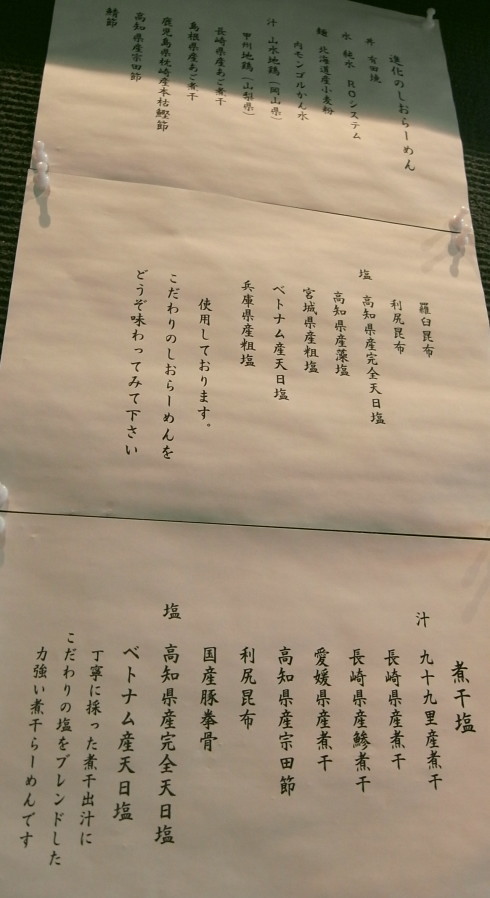 進化のしおらーめん
丼 有田焼
水 純水 ROシステム
麺 北海道産小麦粉
内モンゴルかん水
汁 山水地鶏(岡山県)
甲州地鶏(山梨県)
長崎県産あご煮干
島根県産あご煮干
鹿児島県枕崎産本枯鰹節
高知県産宗田節
鯖節
羅臼昆布
利尻昆布
塩 高知県産完全天日塩
高知県産藻塩
宮城県産粗塩
ベトナム産天日塩
兵庫県産粗塩
使用しております。
こだわりのしおらーめんを
どうぞ味わってみて下さい
煮干塩
汁 九十九里産煮干
長崎県産煮干
長崎県産鯵煮干
愛媛県産煮干
高知県産宗田節
利尻昆布
国産豚拳骨
塩 高知県産完全天日塩
ベトナム産天日塩
丁寧に採った煮干出汁に
こだわりの塩をブレンドした
力強い煮干らーめんです